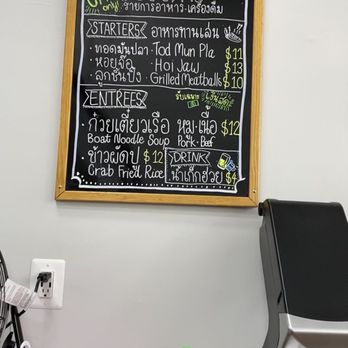 only!
รายการอาหาร-เครื่องดื่ม
STARTERS อาหารทานเล่น
· ทอดมันปลา · Tod Mun Pla $11
· หอยจ๊อ · Hoi Jaw $13
· ลูกชิ้นปิ้ง · Grilled Meatballs $10
ENTREES
· ก๋วยเตี๋ยวเรือ หมู-เนื้อ $12
Boat Noodle Soup Pork-Beef
· ข้าวผัดปู $12
Crab Fried Rice
DRINK
· น้ำเก๊กฮวย $4